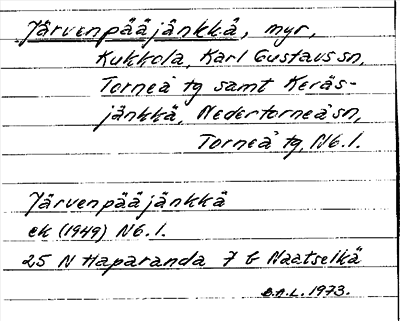 Järvenpääjänkkä, myr,
Kukkola, Karl Gustavs sn,
Torneå tg samt Keräs-
jänkkä, Nedertorneå sn,
Torneå tg, Nb. l.
Järvenpääjänkkä
ek (1949) Nb. l.
25 N Haparanda 7 b Naatselkä
B.A.L. 1973.